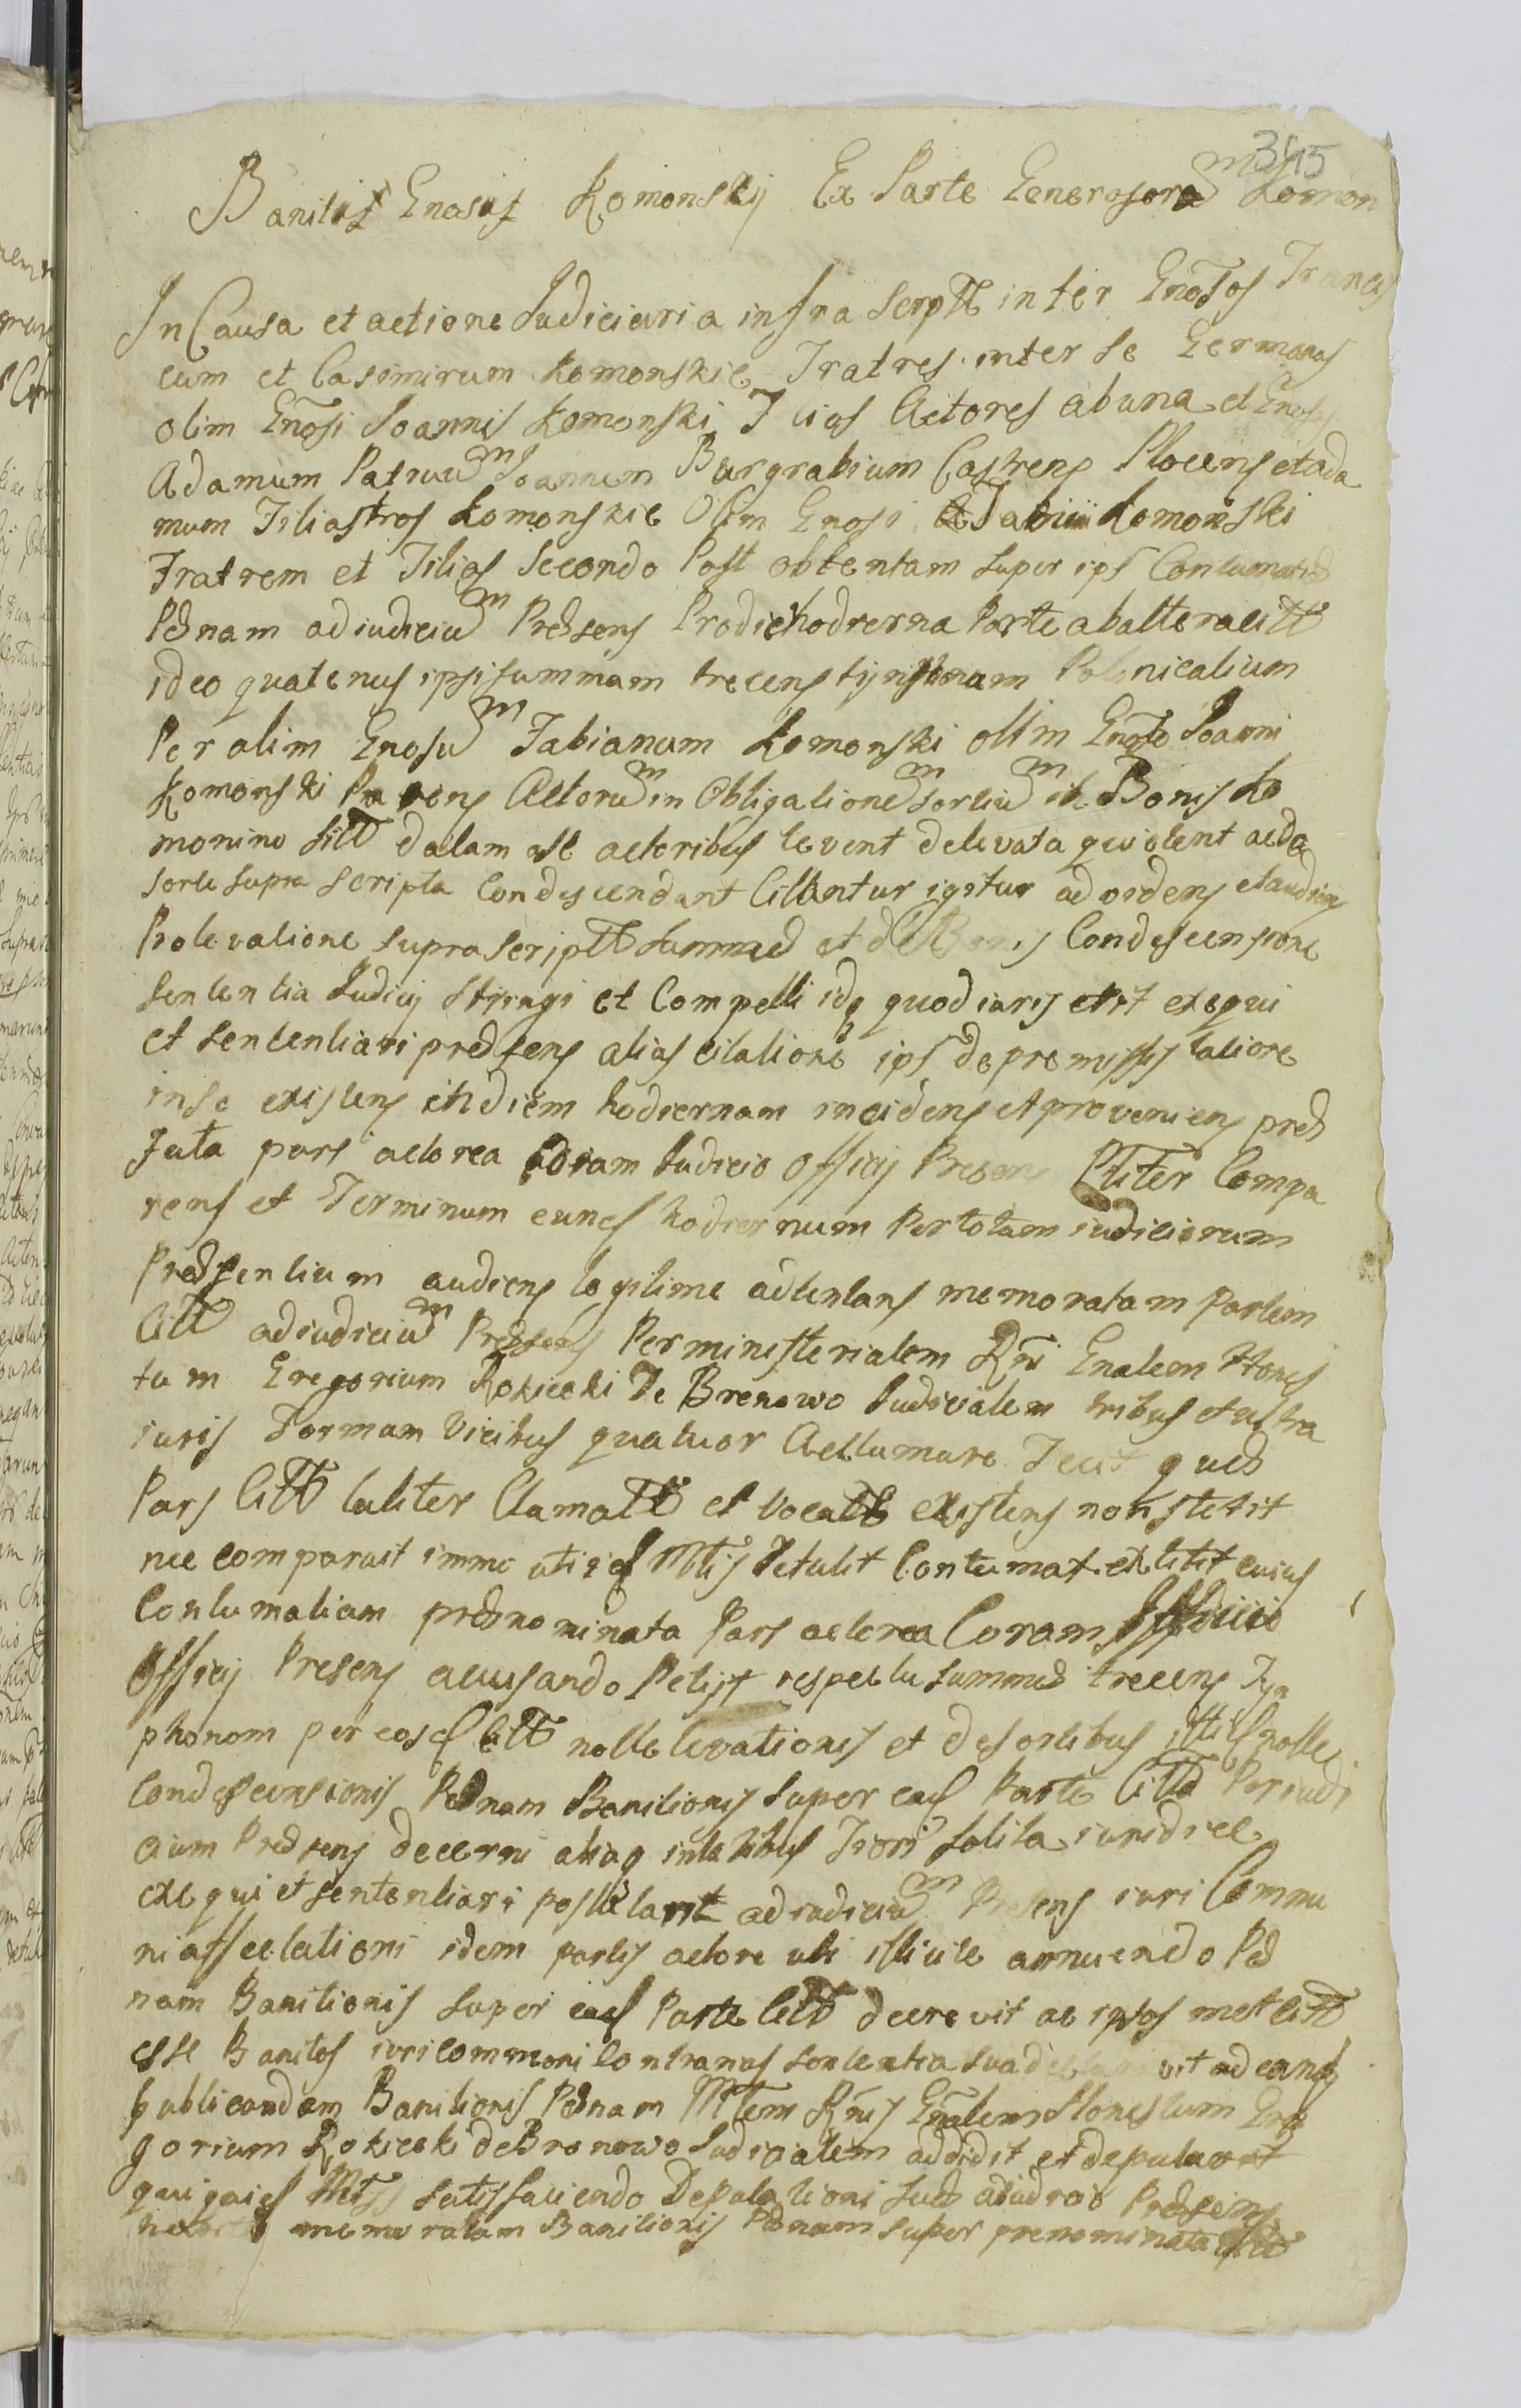 345
Banitus Gnosus Komonskij Ex Parte Generosorum Komon
In Causa et actione Judiciaria infra Scrptt inter Gnosos Francis
cum et Casimirum Komonskie Fratres inter se Germanos
olim Gnosi Joannis Komonski Filios Actores ab una et Gnosos
Adamum Patruum Joannem Burgrabium Castrens Plocens et Ada
mum Filiastros Komonskie Olim Gnosi Fabiani Komonski
Fratrem et Filios Secondo Post obtentam super ips Contumaties
Penam ad iudicium Presens Prodie hodierna Parte ab altera citt
ideo quatenus ipsi summam trecens tijmphonam Polonicalium
Per olim Gnosum Fabianum Komonski olim Gnoso Joanni
Komonski Parens Actorum in Obligatione sortium in Bonis Ko
monino sitt datam Actoribus levent de levata qwietent ac de
sorte supra scripta Condescendant Cittantur igitur ad videns et audiens
Pro levatione supra scriptt Summae et de Bonis Condescensione
sententia Judicij Stringi et Compelli idq quod iuris erit exequi
et sententiari presens alias citatione ips de premissis latiore
in se existens in diem hodiernam incidens et proveniens pre
fata pars actorea coram Judicio Officij Presens Pltter Compa
rens et Terminum eunes hodiernum Per totam iudiciorum
Presentium audiens legitime adtentans memoratam Partem
Citt ad iudicium Presens Per ministerialem Rni Gnalem Hones
tum Gregorium Rokicki de Bronowo Judicialem tribus et ultra
iuris Formam Vicibus quatuor Acclamare Fecit que
Pars Citt taliter Clamatt et vocatt existens non stetit
nec comparuit immo uti id Mtlis Retulit Contumax extitit cuius
Contumatiam prenominata Pars actorea Coram Judicio
Officij Presens acusando Petijt respectu summe trecens Tym
phonom per eos citt nolle levationis et de sortibus istis nolle
Condescensionis Penam Banitionis super eas Parte Citt Per iudi
cium Presens decerni aliaq in talibus Fori solita iuridice
exequi et sententiari postulavit ad iudicium Presens iuri Commu
ni affectationi idem partis actore uti iustite annuendo Pe
nam Banitionis super eas Parte Citt decrevit ac ipsos met citt
esse Banitos iuri commoni contrarios sententia sua declaravit ad eans
publicandam Banitionis Penam Mtlem Rnis Gnalem Honestum Gre
gorium Rokicki de Bronowo Judicialem addidit et deputavit
qui quies Mtlis satisfaciendo Deputationi sue a iudicio Presens
memoratam Banitionis Penam super prenominata citt